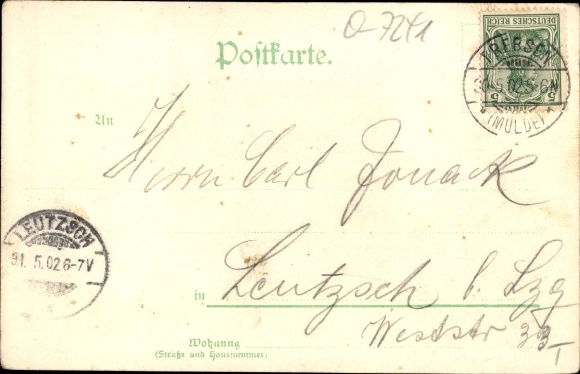 O-7241
Postkarte.
DEUTSCHES REICH
5 5
TREBSEN
30.5.02.5-6N
*(MULDE)*
An
Herrn Carl Jonack
LEUTZSCH
31.5.02 6-7V
in Leutzsch b. Lzg
Weststr 33 I
Wohnung
(Straße und Hausnummer)